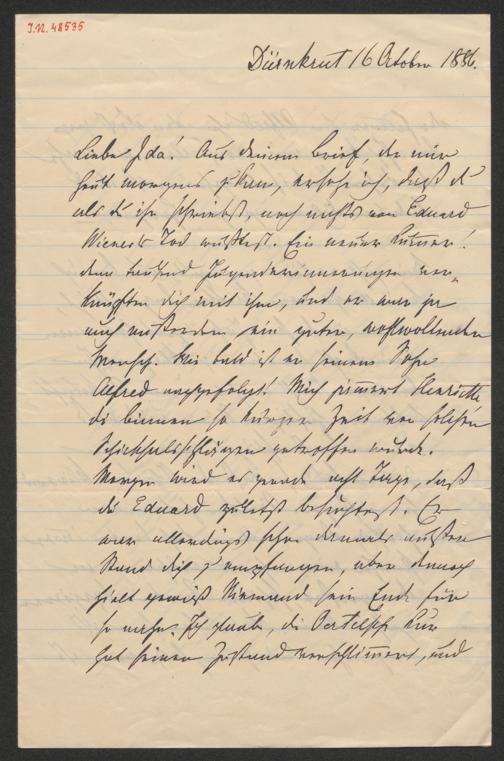 J.N. 48535
Dürnkrut 16 October 1886.
Liebe Ida! Aus deinem Brief, der mir
heut morgens zukam, ersehe ich, daß du
als du ihn schriebst, noch nichts von Eduard
Wiener's Tod wußtest. Ein neuer Kummer!
denn tausend Jugenderinnerungen ver-
knüpften dich mit ihm, und er war ja
auch außerdem ein guter, wohlwollender
Mensch. Wie bald ist er seinem Sohn
Alfred nachgefolgt! Mich jammert Henriette
die binnen so kurzer Zeit von solchen
Schicksalsschlägen getroffen wurde.
Morgen wird es gerade acht Tage, daß
du Eduard zuletzt besuchtest. Er
war allerdings schon damals außer
Stand dich zu empfangen, aber dennoch
hielt gewiß Niemand sein Ende für
so nahe. Ich glaube, die Oertelsche Kur
hat seinen Zustand verschlimmert, und